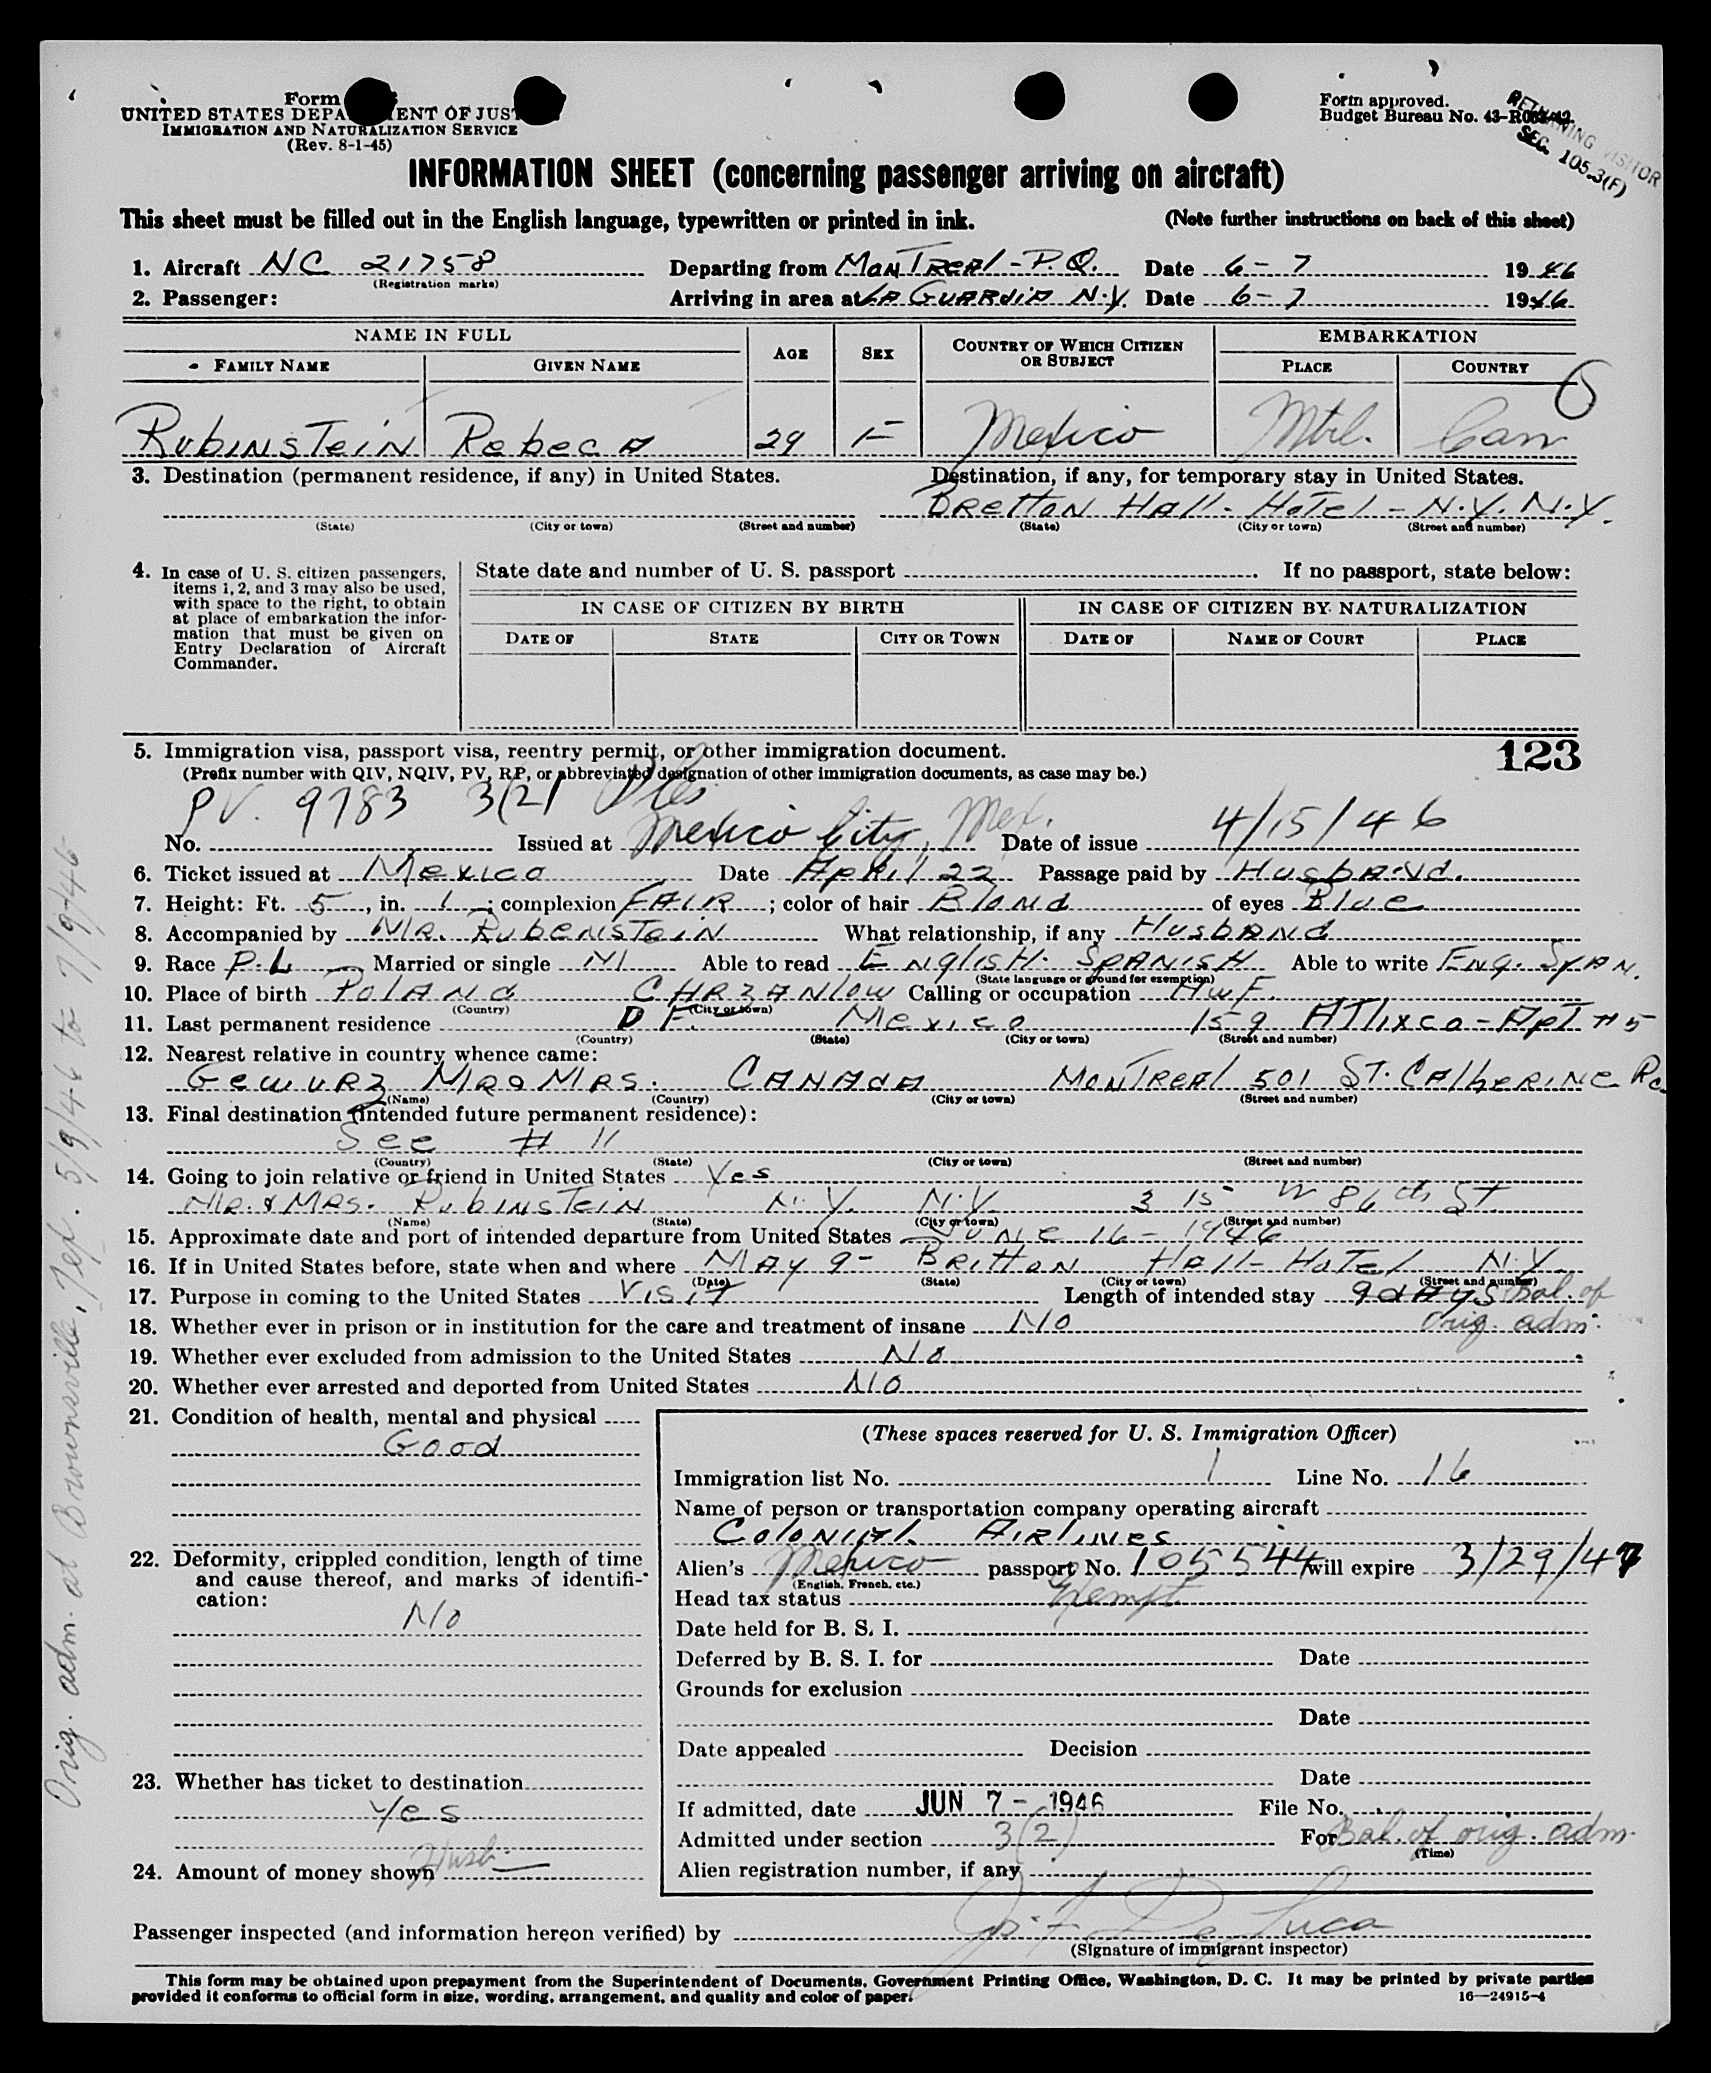 Form
UNITED STATES DEPARTMENT OF JUSTICE
IMMIGRATION AND NATURALIZATION SERVICE
(Rev. 8-1-45)
Form approved.
Budget Bureau No. 43-R083-42.
RETURNING VISITOR
SEC. 105.3(F)
INFORMATION SHEET (concerning passenger arriving on aircraft)
This sheet must be filled out in the English language, typewritten or printed in ink. (Note further instructions on back of this sheet)
1. Aircraft NC 21758 Departing from Montreal - P.Q. Date 6-7 1946
(Registration marks)
2. Passenger: Arriving in area at La Guardia N.Y. Date 6-7 1946
NAME IN FULL AGE SEX COUNTRY OF WHICH CITIZEN OR SUBJECT EMBARKATION
FAMILY NAME GIVEN NAME PLACE COUNTRY
Rubinstein Rebeca 29 F Mexico Mtrl. Can
3. Destination (permanent residence, if any) in United States. Destination, if any, for temporary stay in United States.
Bretton Hall - Hotel - N.Y. N.Y.
(State) (City or town) (Street and number) (State) (City or town) (Street and number)
4. In case of U. S. citizen passengers, items 1, 2, and 3 may also be used, with space to the right, to obtain at place of embarkation the information that must be given on Entry Declaration of Aircraft Commander.
State date and number of U. S. passport . If no passport, state below:
IN CASE OF CITIZEN BY BIRTH IN CASE OF CITIZEN BY NATURALIZATION
DATE OF STATE CITY OR TOWN DATE OF NAME OF COURT PLACE
5. Immigration visa, passport visa, reentry permit, or other immigration document. 123
(Prefix number with QIV, NQIV, PV, RP, or abbreviated designation of other immigration documents, as case may be.)
PV. 9783 3(2)
No. Issued at Mexico City, Mex. Date of issue 4/15/46
6. Ticket issued at Mexico Date April 22 Passage paid by Husband.
7. Height: Ft. 5, in. 1; complexion FAIR; color of hair Blond of eyes Blue
8. Accompanied by Mr. Rubenstein What relationship, if any Husband
9. Race P.L Married or single M Able to read English. Spanish Able to write Eng. Span.
(State language or ground for exemption)
10. Place of birth Poland CHRZANlow Calling or occupation Hwf.
(Country) (City or town)
11. Last permanent residence D F. Mexico 159 Atlixco - Apt #5
(Country) (State) (City or town) (Street and number)
12. Nearest relative in country whence came:
Gewurz Mr & Mrs. Canada Montreal 501 St. Catherine Rd
(Name) (Country) (City or town) (Street and number)
13. Final destination (intended future permanent residence):
See # 11
(Country) (State) (City or town) (Street and number)
14. Going to join relative or friend in United States Yes
Mr. & Mrs. Rubinstein N.Y. N.Y. 315 W 86th St.
(Name) (State) (City or town) (Street and number)
15. Approximate date and port of intended departure from United States June 16 - 1946
16. If in United States before, state when and where May 9 - Britton Hall - Hotel N.Y.
(Date) (State) (City or town) (Street and number)
17. Purpose in coming to the United States Visit Length of intended stay 9 days bal. of
orig. adm.
18. Whether ever in prison or in institution for the care and treatment of insane No
19. Whether ever excluded from admission to the United States No
20. Whether ever arrested and deported from United States No
21. Condition of health, mental and physical
Good
22. Deformity, crippled condition, length of time
and cause thereof, and marks of identifi-
cation:
No
23. Whether has ticket to destination
Yes
24. Amount of money shown Husb.
(These spaces reserved for U. S. Immigration Officer)
Immigration list No. 1 Line No. 16
Name of person or transportation company operating aircraft
Colonial Airlines
Alien's Mexico passport No. 105544 will expire 3/29/47
(English, French, etc.)
Head tax status Exempt
Date held for B. S. I.
Deferred by B. S. I. for Date
Grounds for exclusion
Date
Date appealed Decision
Date
If admitted, date JUN 7 - 1946 File No.
Admitted under section 3(2) For Bal. of orig. adm.
(Time)
Alien registration number, if any
Passenger inspected (and information hereon verified) by Jos. F. De Luca
(Signature of immigrant inspector)
This form may be obtained upon prepayment from the Superintendent of Documents, Government Printing Office, Washington, D. C. It may be printed by private parties
provided it conforms to official form in size, wording, arrangement, and quality and color of paper.
16—24915-4
Orig. adm. at Brownsville, Tex. 5/9/46 to 7/9/46